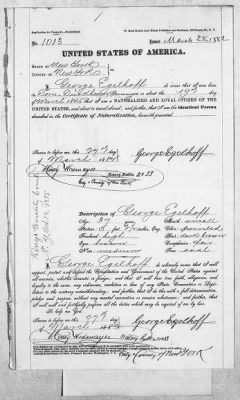 No. 1013
Issued March 28, 1882
UNITED STATES OF AMERICA.
STATE OF New York
COUNTY OF New York
I, George Egelhoff do swear that I was born
of March 1845 that I am a NATURALIZED AND LOYAL CITIZEN OF THE
UNITED STATES, and about to travel abroad; and further, that I am the identical Person
described in the Certificate of Naturalization, herewith presented.
Sworn to before me, this 27th day
of March 1882
George Egelhoff
Notary Public
City & County of New York
Description of George Egelhoff
Age: 37
Stature: 5 ft
Forehead: high
Eyes:
Nose: medium
Mouth: small
Chin: pointed
Hair: dark brown
Complexion:
Face: oval
I, George Egelhoff do solemnly swear that I will
support, protect and defend the Constitution and Government of the United States against
all enemies, whether domestic or foreign; and that I will bear true faith, allegiance
and loyalty to the same, any ordinance, resolution or law of any State, Convention or Legislature
to the contrary notwithstanding; and further, that I do this with a full determination,
pledge and purpose, without any mental reservation or evasion whatsoever; and further, that
I will well and faithfully perform all the duties which may be required of me by law.
So help me God.
Sworn to before me, this 27th day
of March 1882
George Egelhoff
City & County of New York